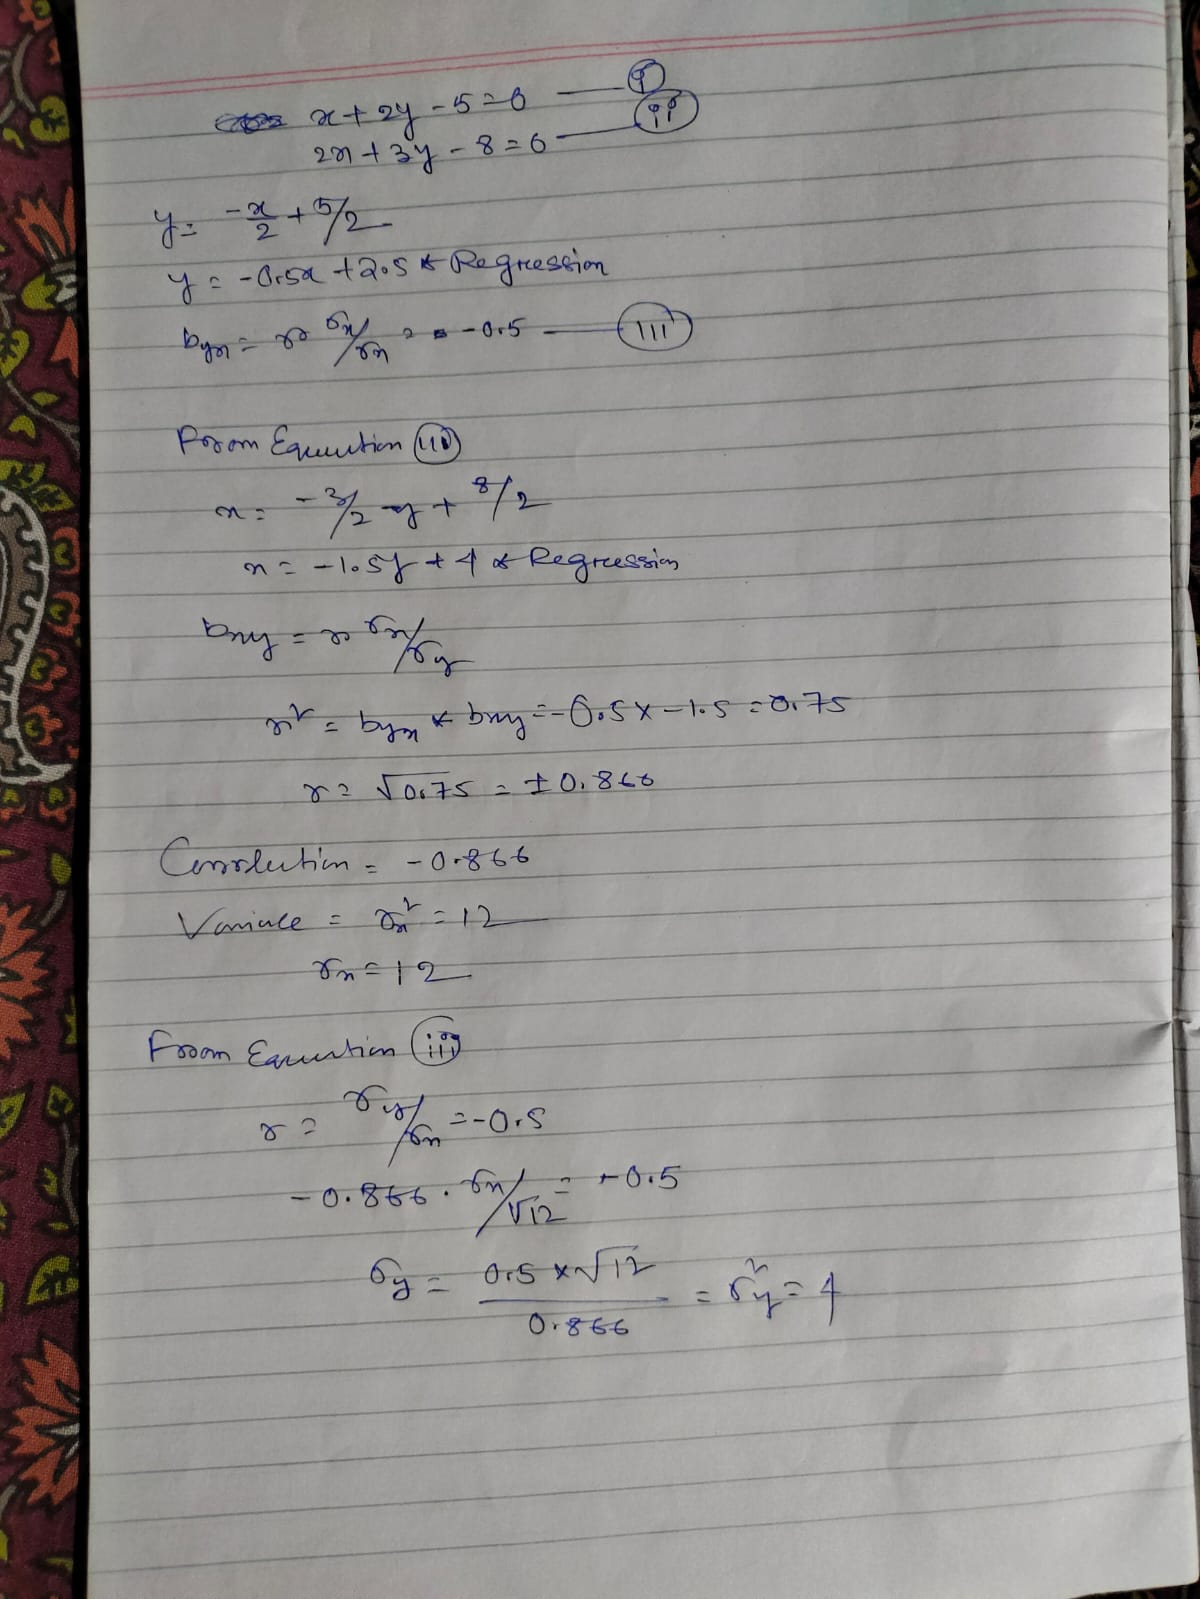 x + 2y - 5 = 0 — (i)
2x + 3y - 8 = 0 — (ii)
y = -x/2 + 5/2
y = -0.5x + 2.5 * Regression
byx = r σx/σx = -0.5 — (iii)
From Equation (ii)
x = -3/2 y + 8/2
x = -1.5y + 4 * Regression
bxy = r σx/σy
r² = byx * bxy = -0.5 x -1.5 = 0.75
r = √0.75 = ± 0.866
Correlation = -0.866
Variance = σx² = 12
σx = 12
From Equation (iii)
r = σy/σx = -0.5
-0.866 . σx/√12 = -0.5
σy = 0.5 x √12 / 0.866 = σy² = 4